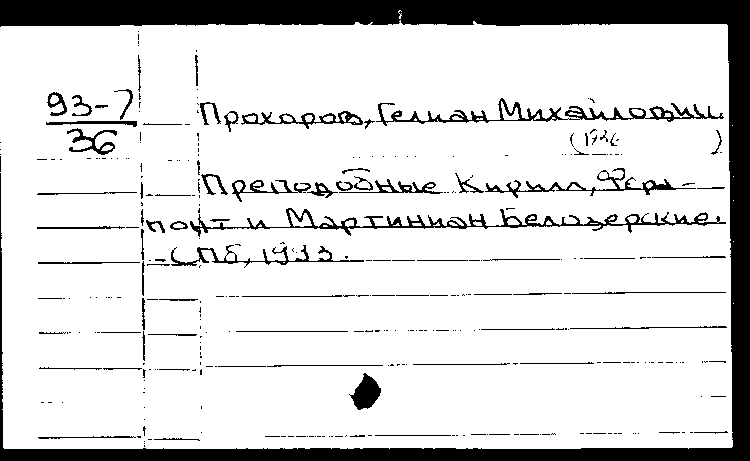 93-7
36
Прохоров, Гелиан Михайлович.
(1936 )
Преподобные Кирилл, Фера-
понт и Мартиниан Белозерские.
- СПб, 1993.